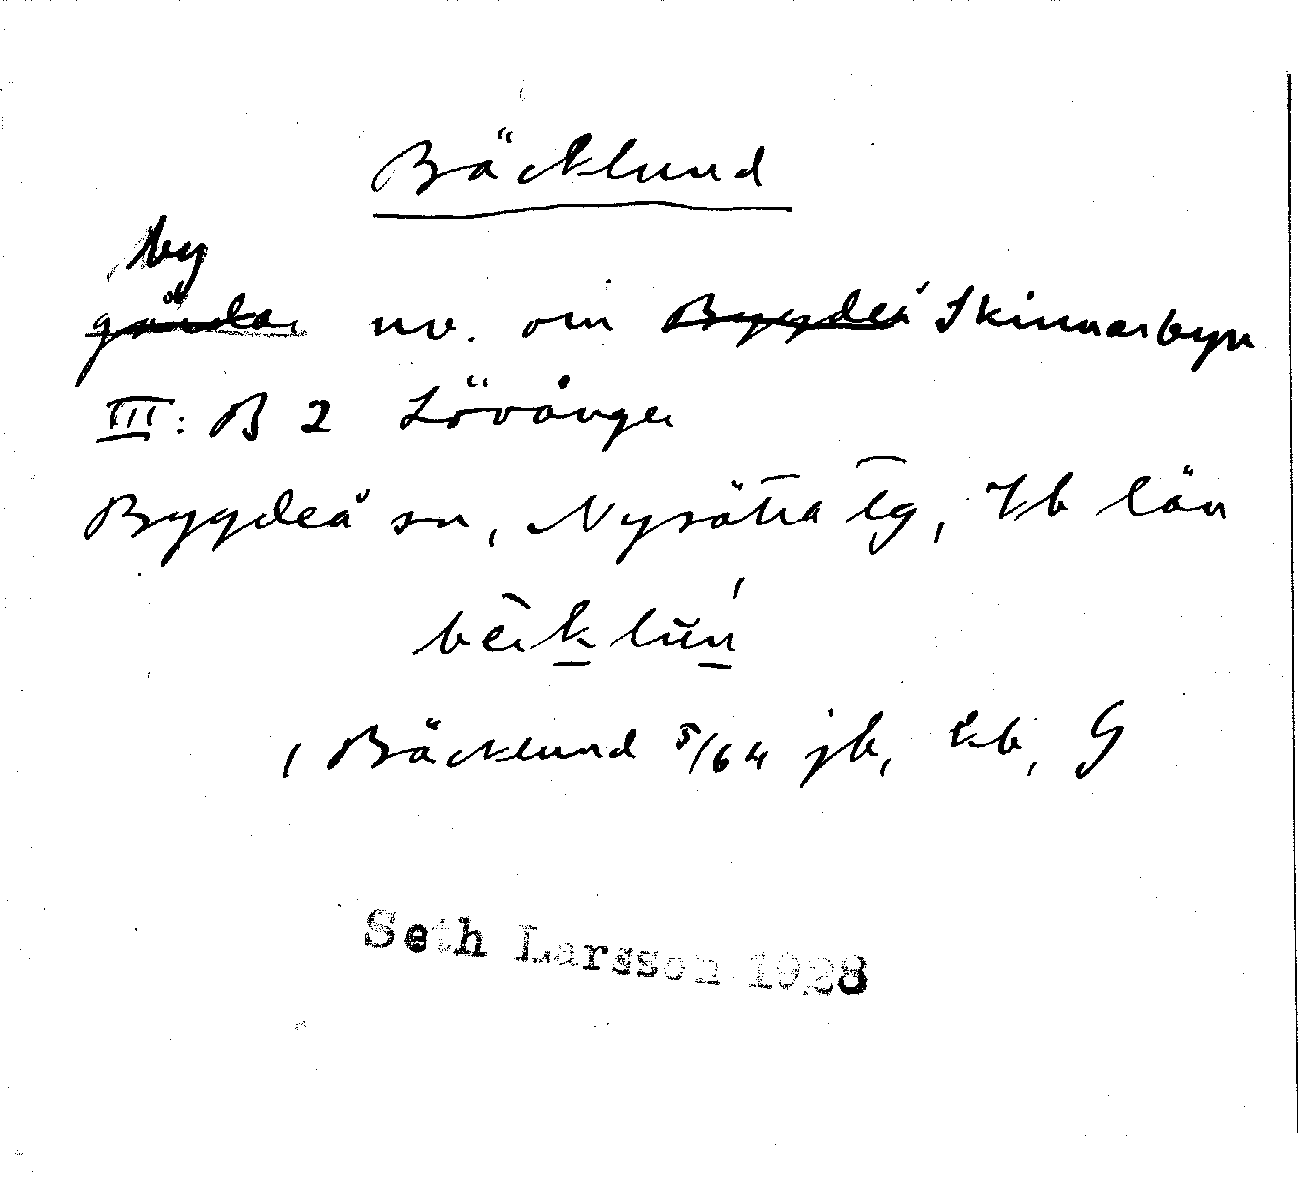 Bäcklund
by
gårdar nv. om Bygdeå Skinnarbyn
III: B 2 Lövånger
Bygdeå sn, Nysätra tg, Vb län
1 Bäcklund 5/64 jb, kb, G
Seth Larsson 1928